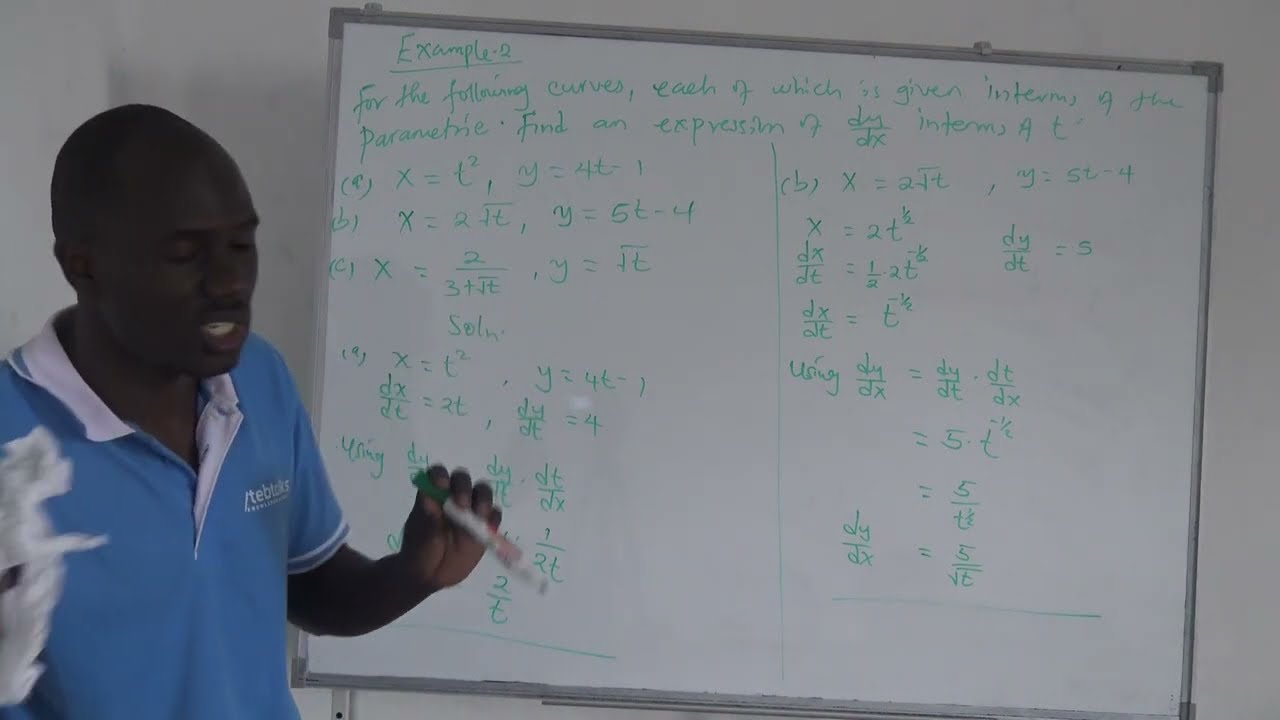 Example-2
For the following curves, each of which is given interms of the
parametric. Find an expression of dy/dx interms of t
(a) x = t², y = 4t-1
(b) x = 2√t, y = 5t-4
(c) x = 2/(3+√t), y = √t
Soln.
(a) x = t², y = 4t-1
dx/dt = 2t, dy/dt = 4
Using dy dy/dt · dt/dx
1/2t
2/t
(b) x = 2√t, y = 5t-4
x = 2t^½
dx/dt = ½·2t^-½ dy/dt = 5
dx/dt = t^-½
Using dy/dx = dy/dt · dt/dx
= 5·t^-½
= 5/t^½
dy/dx = 5/√t
/tebtalks